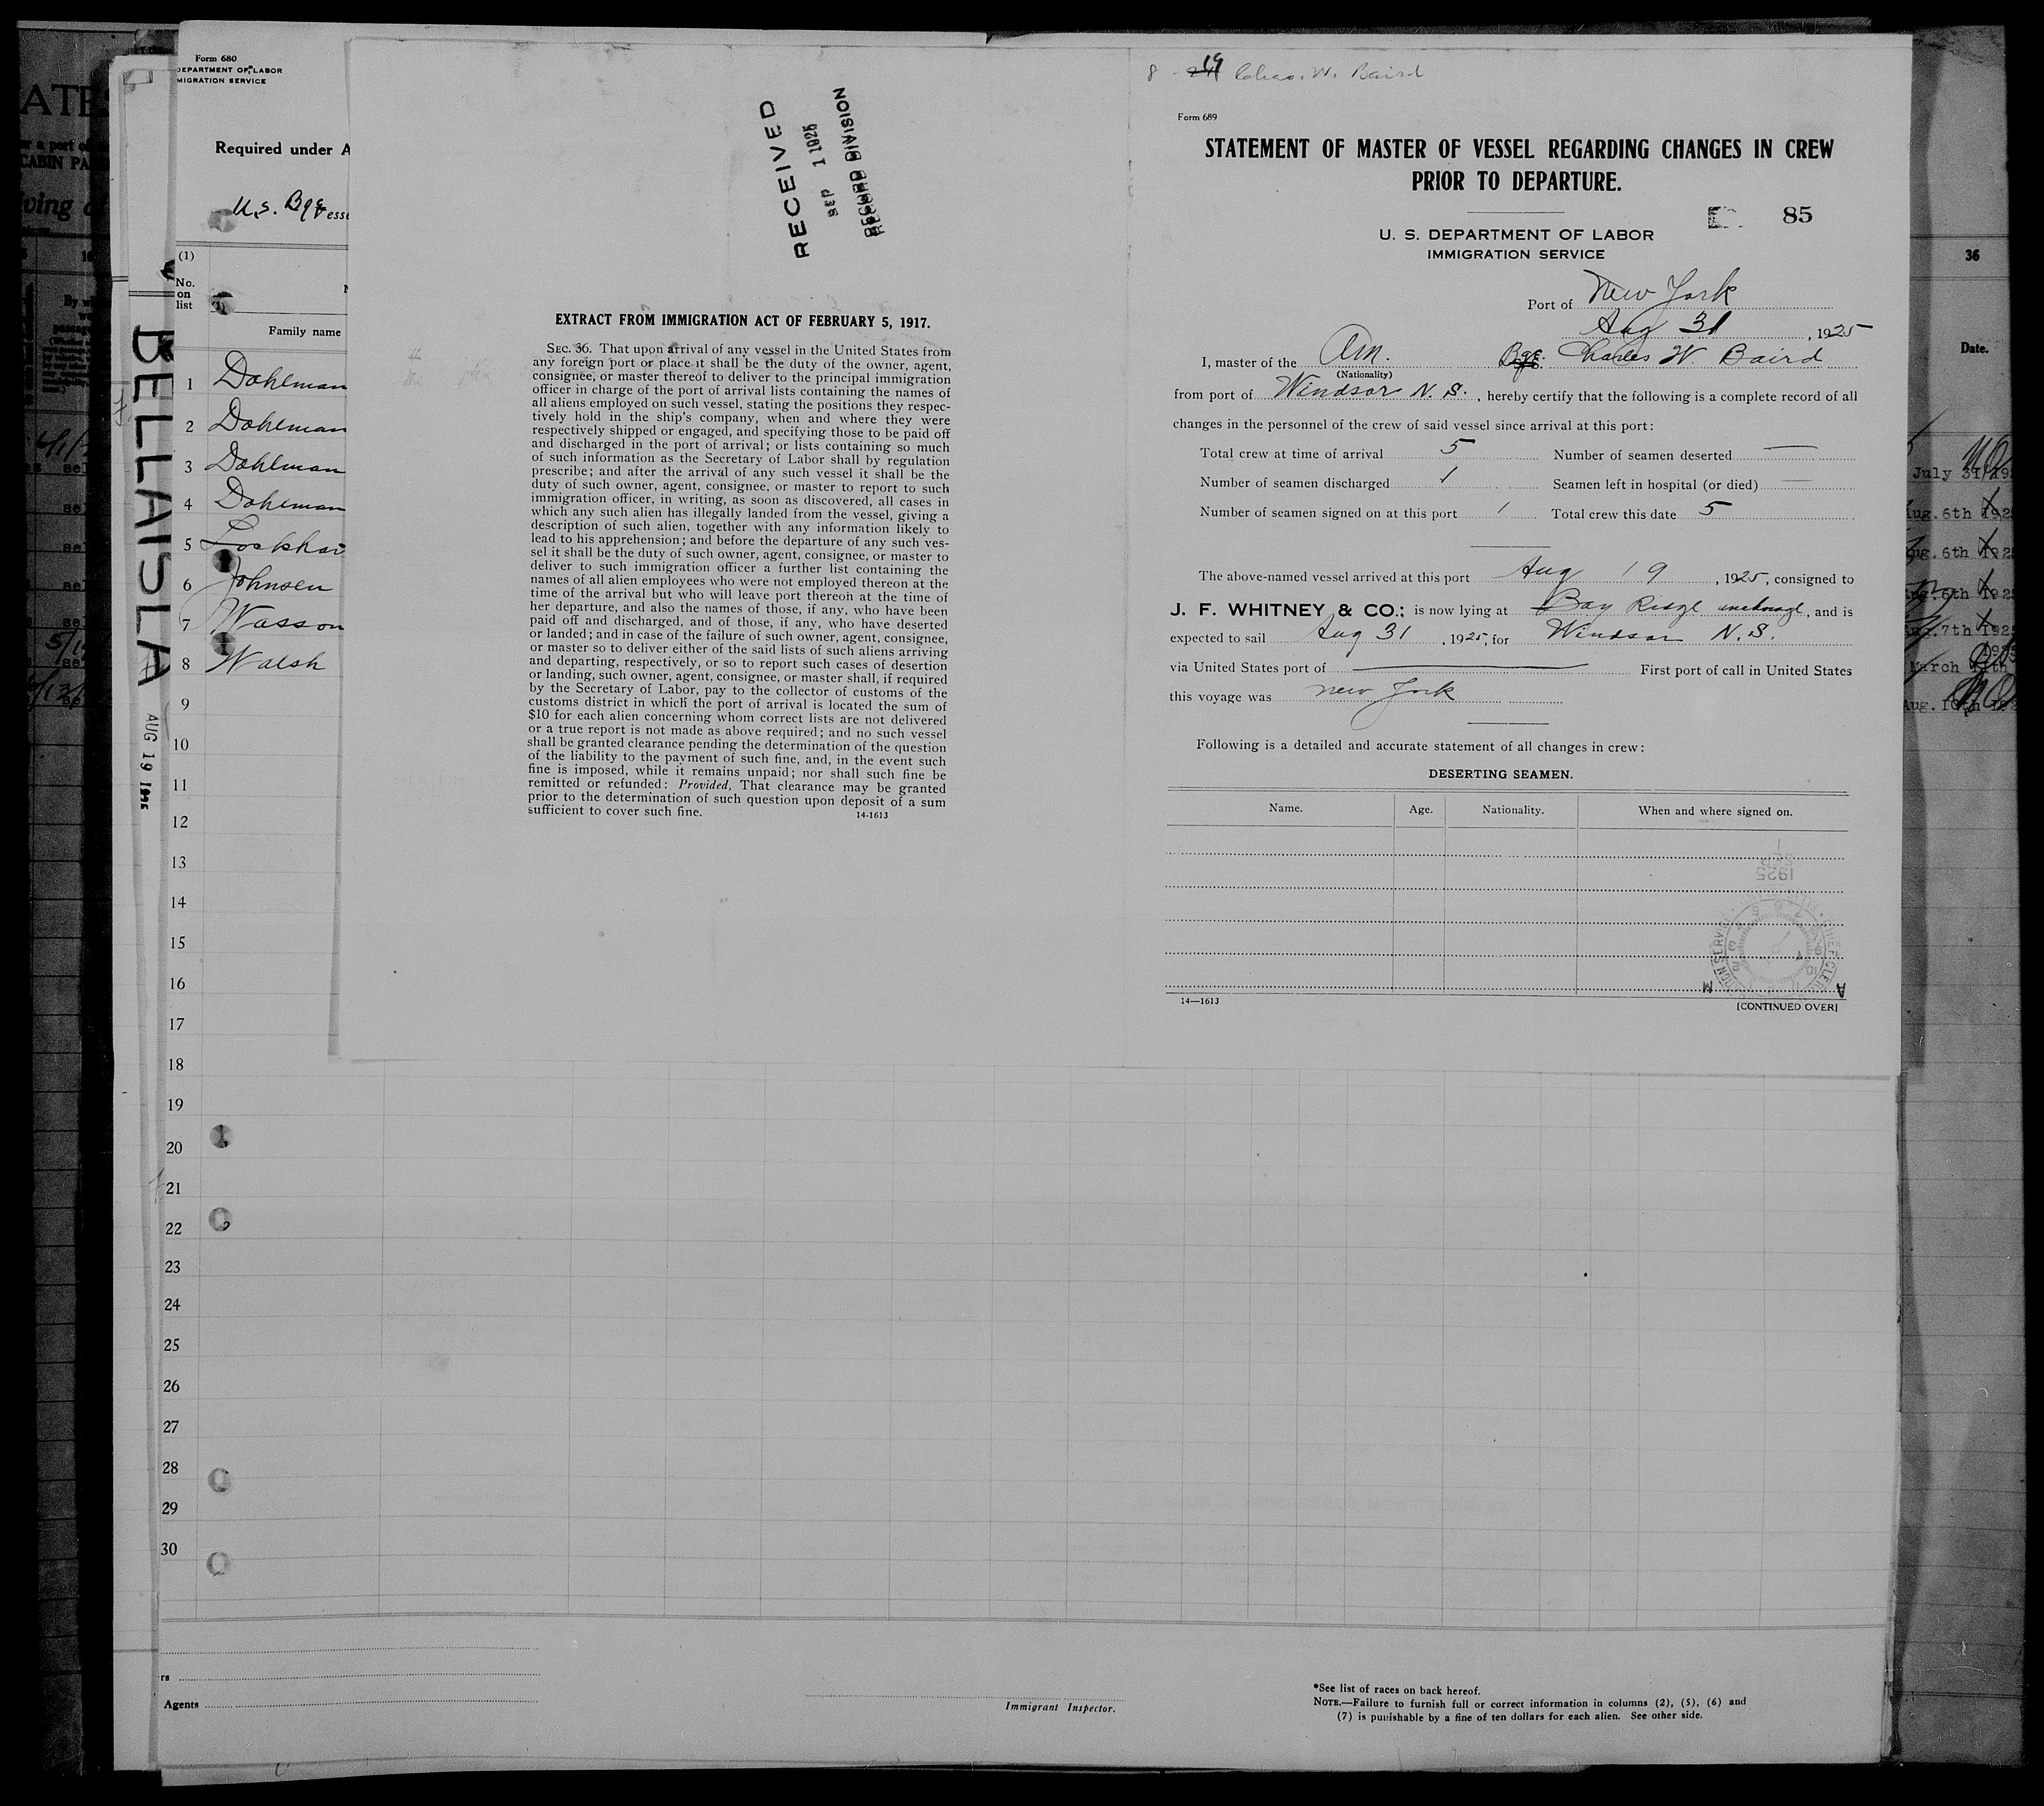 Form 680
DEPARTMENT OF LABOR
IMMIGRATION SERVICE
Required under A
U.S. Bge
(1)
No.
on
list
Family name
1 Dahlman
2 Dahlman
3 Dahlman
4 Dahlman
5 Lockhar
6 Johnsen
7 Wasson
8 Walsh
9
10
11
12
13
14
15
16
17
18
19
20
21
22
23
24
25
26
27
28
29
30
rs
Agents
Immigrant Inspector.
*See list of races on back hereof.
NOTE.—Failure to furnish full or correct information in columns (2), (5), (6) and
(7) is punishable by a fine of ten dollars for each alien. See other side.
BELLAISLA
AUG 19
RECEIVED
SEP 1 1925
RECORD DIVISION
EXTRACT FROM IMMIGRATION ACT OF FEBRUARY 5, 1917.
SEC. 36. That upon arrival of any vessel in the United States from
any foreign port or place it shall be the duty of the owner, agent,
consignee, or master thereof to deliver to the principal immigration
officer in charge of the port of arrival lists containing the names of
all aliens employed on such vessel, stating the positions they respec-
tively hold in the ship's company, when and where they were
respectively shipped or engaged, and specifying those to be paid off
and discharged in the port of arrival; or lists containing so much
of such information as the Secretary of Labor shall by regulation
prescribe; and after the arrival of any such vessel it shall be the
duty of such owner, agent, consignee, or master to report to such
immigration officer, in writing, as soon as discovered, all cases in
which any such alien has illegally landed from the vessel, giving a
description of such alien, together with any information likely to
lead to his apprehension; and before the departure of any such ves-
sel it shall be the duty of such owner, agent, consignee, or master to
deliver to such immigration officer a further list containing the
names of all alien employees who were not employed thereon at the
time of the arrival but who will leave port thereon at the time of
her departure, and also the names of those, if any, who have been
paid off and discharged, and of those, if any, who have deserted
or landed; and in case of the failure of such owner, agent, consignee,
or master so to deliver either of the said lists of such aliens arriving
and departing, respectively, or so to report such cases of desertion
or landing, such owner, agent, consignee, or master shall, if required
by the Secretary of Labor, pay to the collector of customs of the
customs district in which the port of arrival is located the sum of
$10 for each alien concerning whom correct lists are not delivered
or a true report is not made as above required; and no such vessel
shall be granted clearance pending the determination of the question
of the liability to the payment of such fine, and, in the event such
fine is imposed, while it remains unpaid; nor shall such fine be
remitted or refunded: Provided, That clearance may be granted
prior to the determination of such question upon deposit of a sum
sufficient to cover such fine.
14-1613
8 - 19 Chas. W. Baird
Form 689
STATEMENT OF MASTER OF VESSEL REGARDING CHANGES IN CREW
PRIOR TO DEPARTURE.
85
U. S. DEPARTMENT OF LABOR
IMMIGRATION SERVICE
Port of New York
Aug 31, 1925
I, master of the Am. Bge. Charles W Baird
(Nationality)
from port of Windsor N. S., hereby certify that the following is a complete record of all
changes in the personnel of the crew of said vessel since arrival at this port:
Total crew at time of arrival 5 Number of seamen deserted —
Number of seamen discharged 1 Seamen left in hospital (or died) —
Number of seamen signed on at this port 1 Total crew this date 5
The above-named vessel arrived at this port Aug 19, 1925, consigned to
J. F. WHITNEY & CO.; is now lying at Bay Ridge anchorage, and is
expected to sail Aug 31, 1925, for Windsor N. S.
via United States port of — First port of call in United States
this voyage was New York
Following is a detailed and accurate statement of all changes in crew:
DESERTING SEAMEN.
Name. Age. Nationality. When and where signed on.
SEP 1
1925
A M
14—1613
[CONTINUED OVER]
36
Date.
July 31/19
Aug. 6th 192
Aug. 6th 192
Aug. 6th 192
Aug. 7th 192
March
Aug. 10th 192